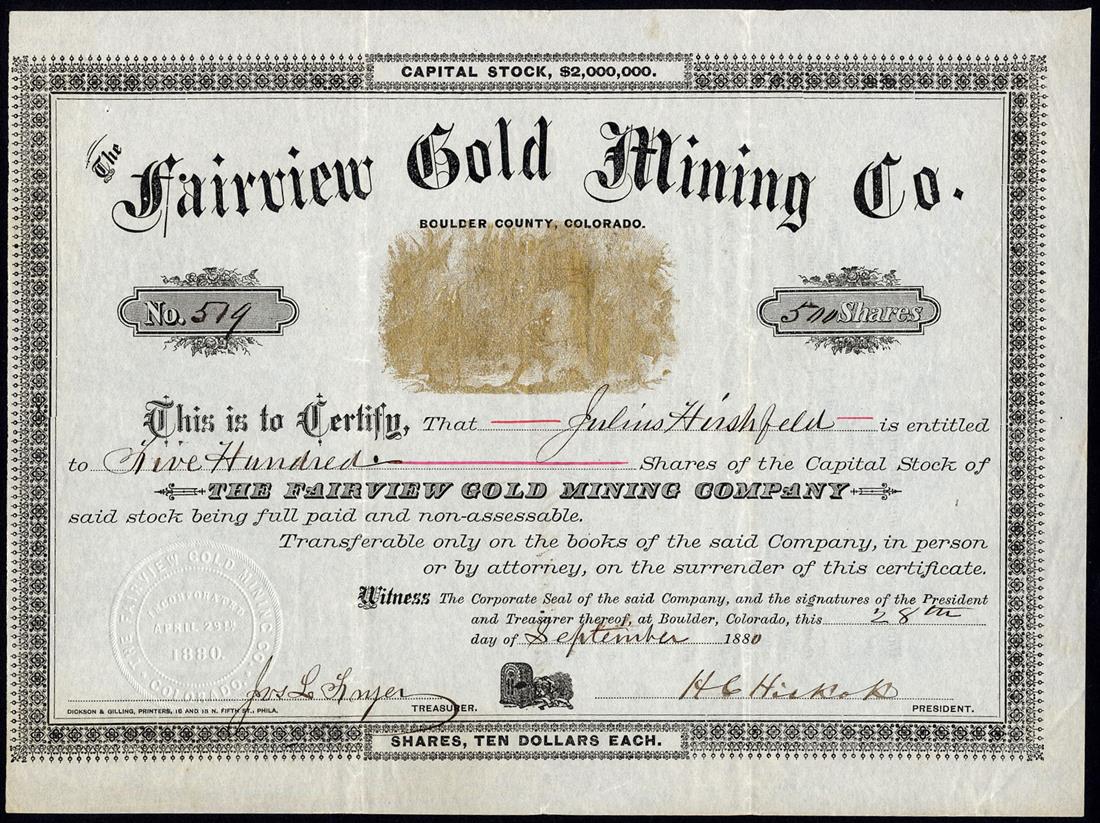 CAPITAL STOCK, $2,000,000.
The Fairview Gold Mining Co.
BOULDER COUNTY, COLORADO.
No. 519
500 Shares
This is to Certify, That Julius Hirshfeld is entitled
to Five Hundred Shares of the Capital Stock of
THE FAIRVIEW GOLD MINING COMPANY
said stock being full paid and non-assessable.
Transferable only on the books of the said Company, in person
or by attorney, on the surrender of this certificate.
Witness The Corporate Seal of the said Company, and the signatures of the President
and Treasurer thereof, at Boulder, Colorado, this 28th
day of September 1880
THE FAIRVIEW GOLD MINING CO.
INCORPORATED
APRIL 29th
1880.
COLORADO.
Jos L
TREASURER.
H C Hickok
PRESIDENT.
DICKSON & GILLING, PRINTERS, 16 AND 18 N. FIFTH ST., PHILA.
SHARES, TEN DOLLARS EACH.